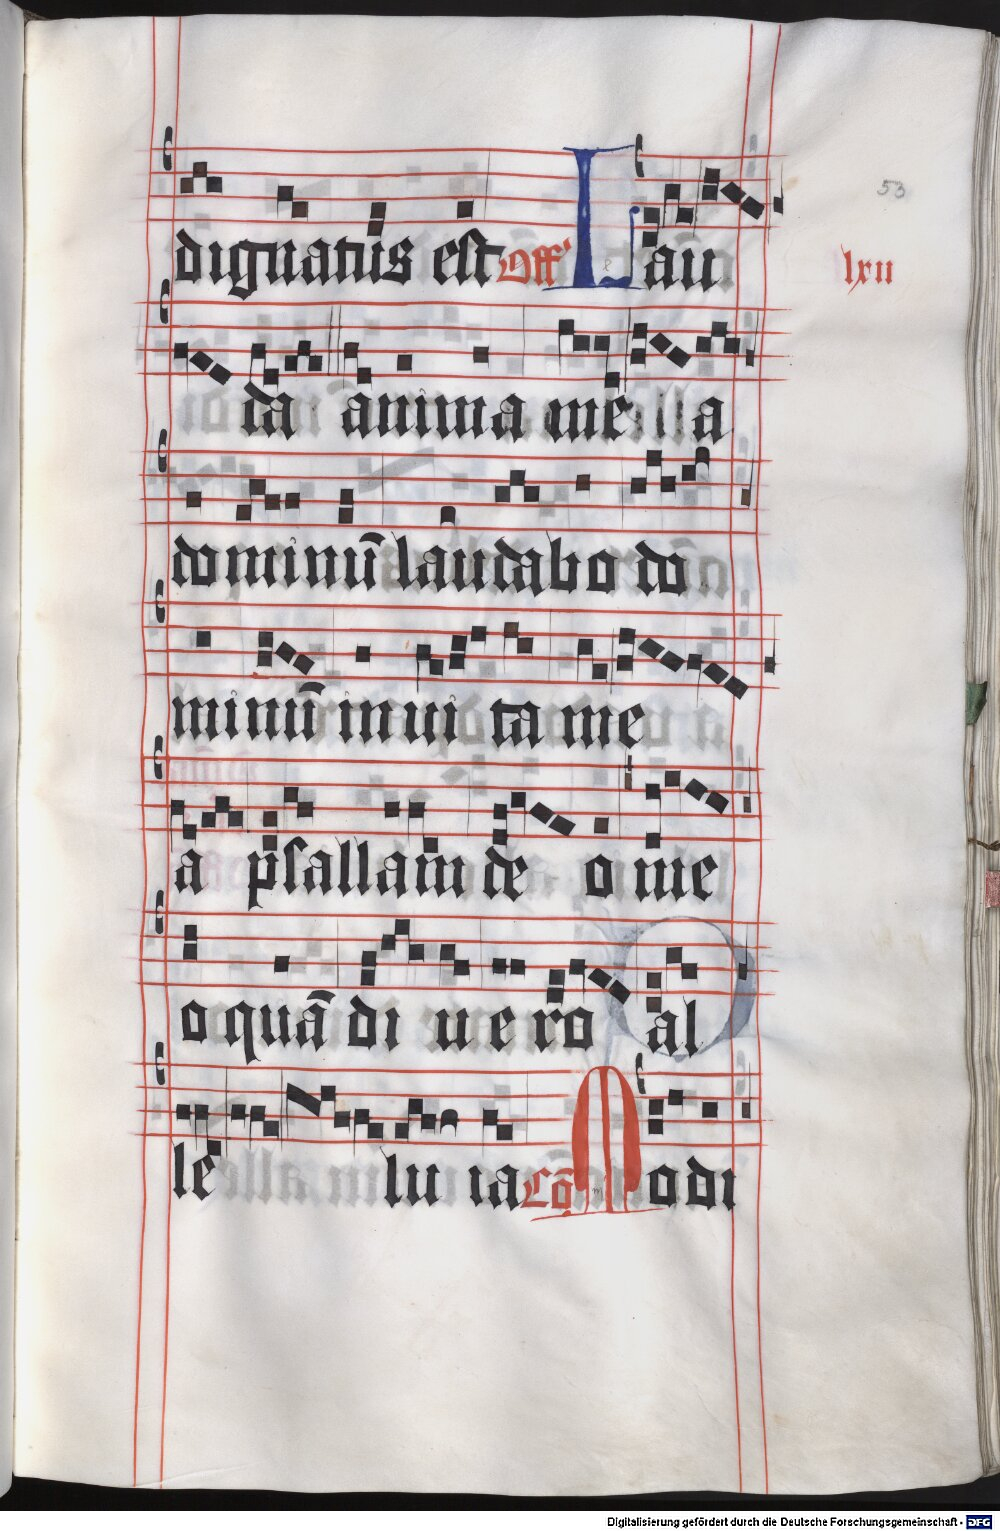 53
dignatus est Off' Lau
lxii
da anima mea
dominū laudabo do
minū in uita me
a psallam deo me
o quādi uero al
le lu ia Cō Modi
Digitalisierung gefördert durch die Deutsche Forschungsgemeinschaft - DFG